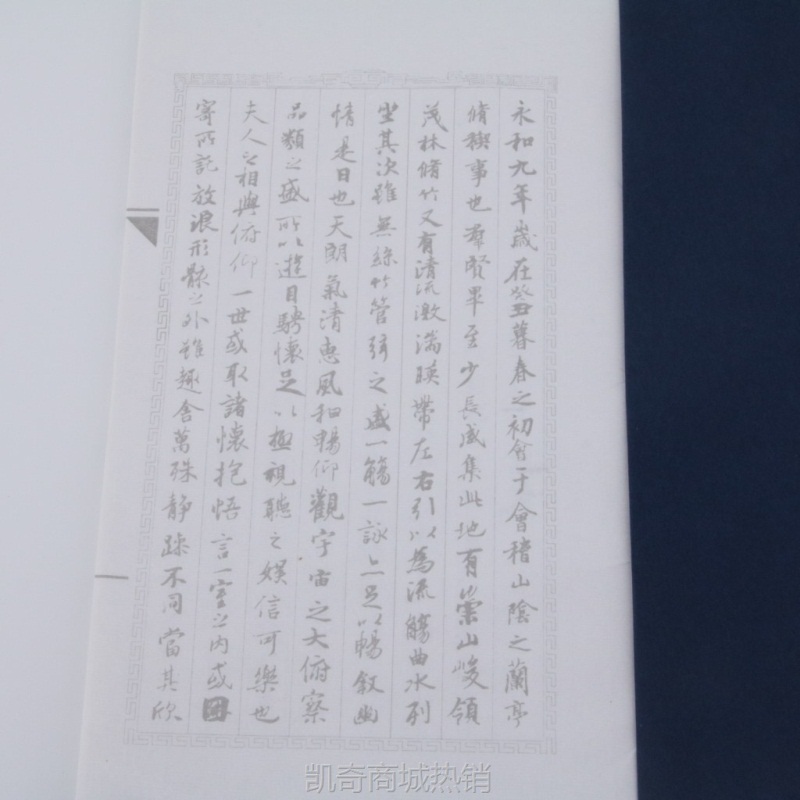 永和九年歲在癸丑暮春之初會于會稽山陰之蘭亭
脩稧事也羣賢畢至少長咸集此地有崇山峻領
茂林脩竹又有清流激湍暎帶左右引以為流觴曲水列
坐其次雖無絲竹管弦之盛一觴一詠亦足以暢叙幽
情是日也天朗氣清惠風和暢仰觀宇宙之大俯察
品類之盛所以遊目騁懷足以極視聽之娛信可樂也
夫人之相與俯仰一世或取諸懷抱悟言一室之內或
寄所託放浪形骸之外雖趣舍萬殊静躁不同當其欣
凯奇商城热销